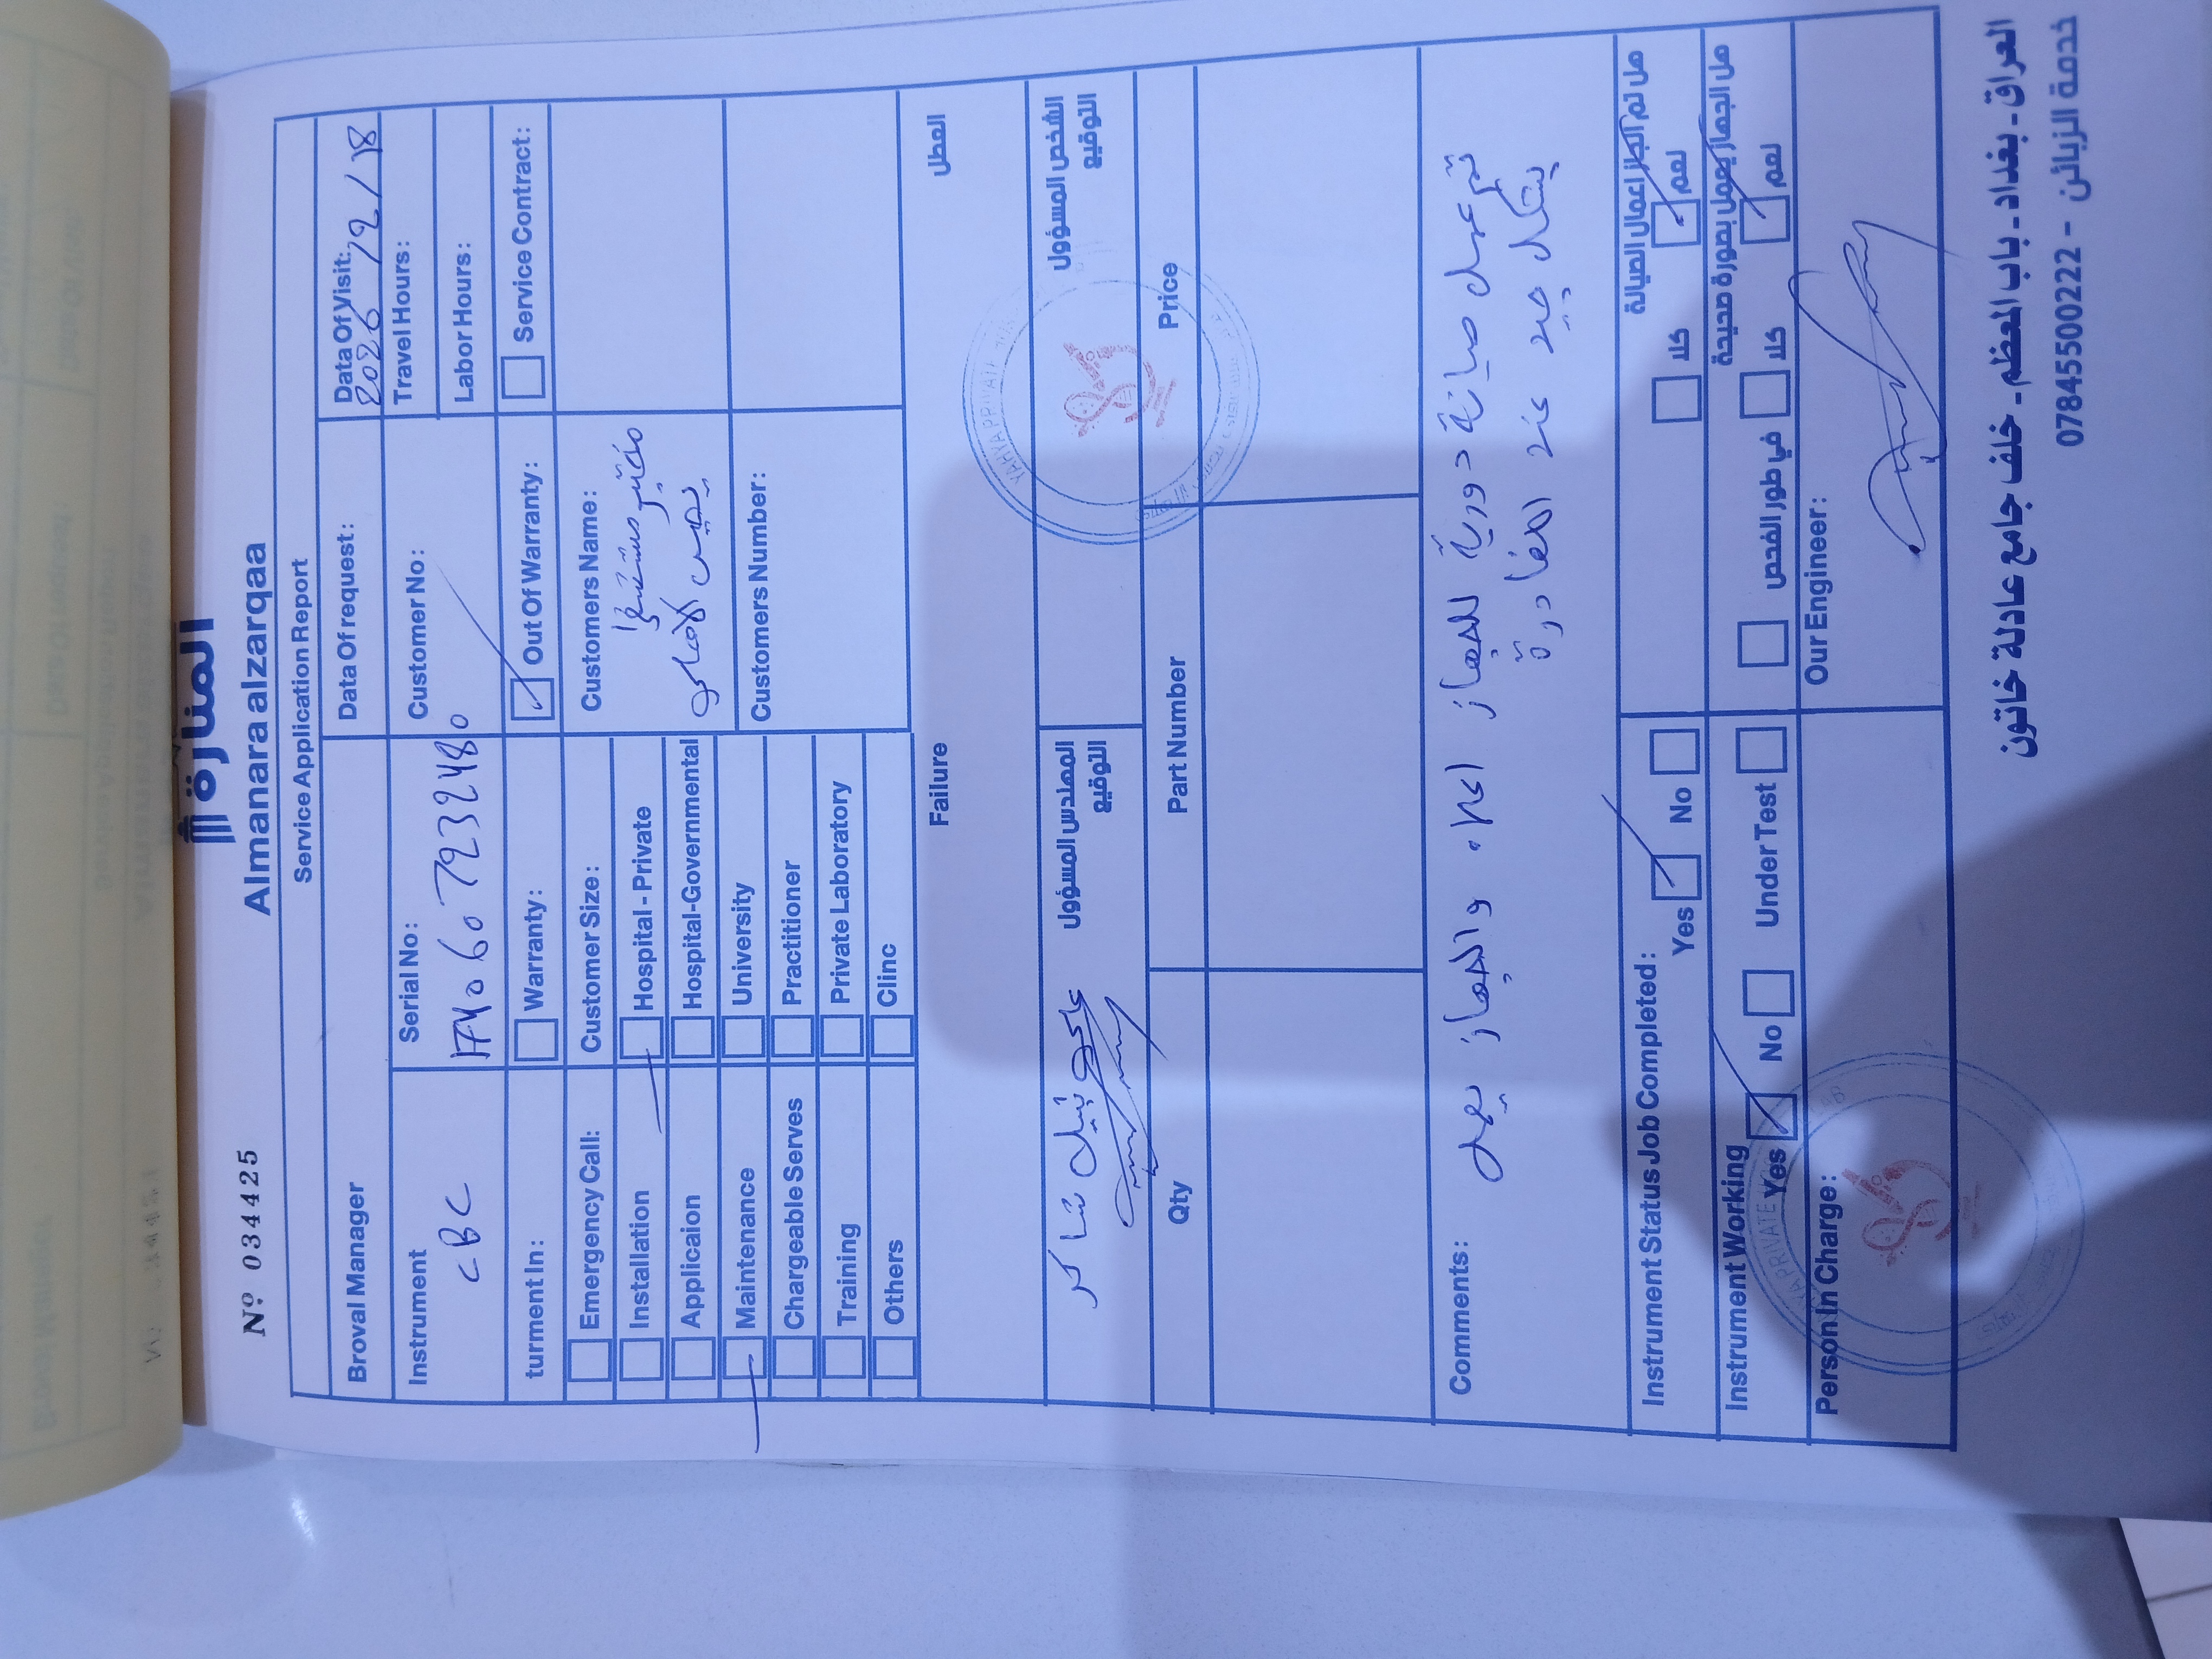 المنارة
Almanara alzarqaa
Nº 034425
Service Application Report
Broval Manager
Data Of request:
Data Of Visit:
2026 / 2 / 18
Travel Hours:
Labor Hours:
Instrument
CBC
Serial No:
Customer No:
turment In:
Warranty:
Out Of Warranty:
Service Contract:
Emergency Call:
Installation
Applicaion
Maintenance
Chargeable Serves
Training
Others
Customer Size:
Hospital - Private
Hospital-Governmental
University
Practitioner
Private Laboratory
Clinc
Customers Name:
مختبر مستشفى
يحيى الاهلي
Customers Number:
Failure
العطل
المهندس المسؤول
التوقيع
الشخص المسؤول
التوقيع
Qty
Part Number
Price
Comments:
تم عمل صيانة دورية للجهاز اعلاه والجهاز يعمل
بشكل جيد عند المغادرة
Instrument Status Job Completed:
Yes
No
هل تم انجاز اعمال الصيانة
كلا
نعم
Instrument Working
Yes
No
Under Test
هل الجهاز يعمل بصورة صحيحة
في طور الفحص
كلا
نعم
Person In Charge:
Our Engineer:
العراق - بغداد - باب المعظم - خلف جامع عادلة خاتون
خدمة الزبائن - 07845500222